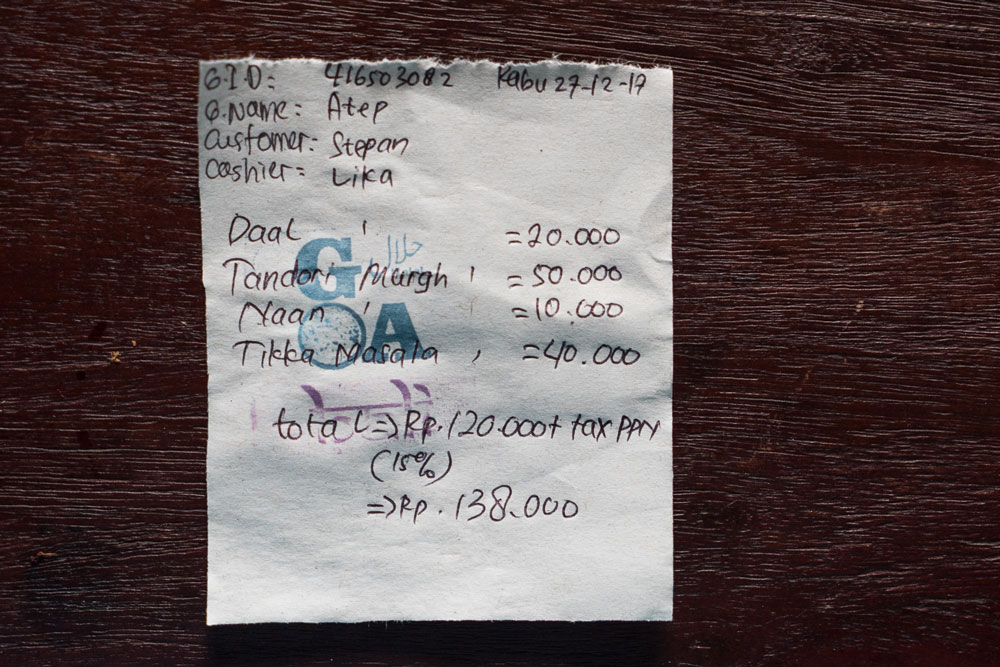 G.I.D: 416503082 Rabu 27-12-17
G.Name: Atep
Customer: Stepan
Cashier: Lika
Daal 1 =20.000
Tandori Murgh 1 =50.000
Naan 1 =10.000
Tikka Masala , =40.000
GOA
حلال
total => Rp.120.000+ tax PPN
(15%)
=>Rp.138.000